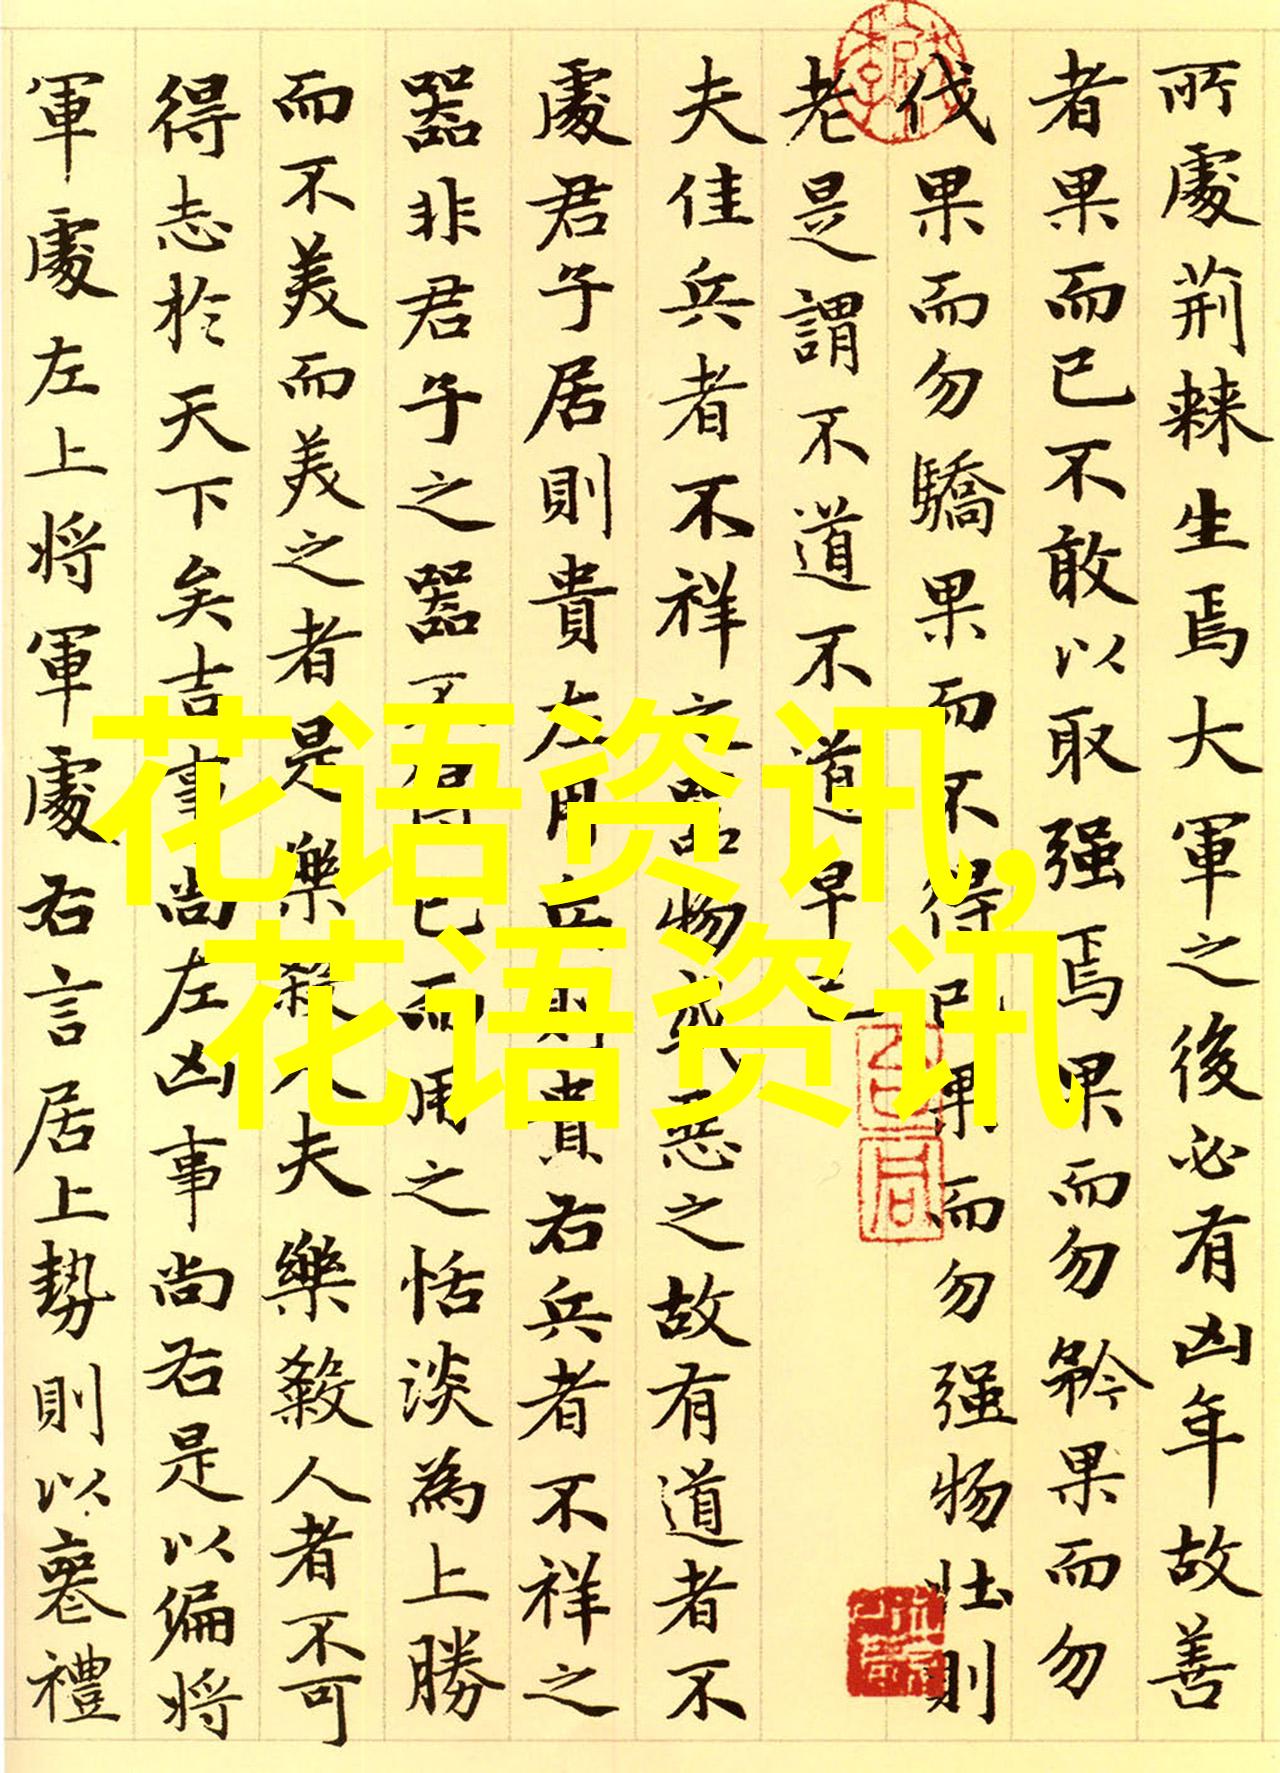 所處荊棘生焉大軍之後必有凶年故善
者果而已不敢以取强焉果而勿矜果而勿
伐果而勿驕果而不得已果而勿强物壮則
老是謂不道不道早已
夫佳兵者不祥之器物或惡之故有道者不
處君子居則貴左用兵則貴右兵者不祥之
器非君子之器不得已而用之恬淡為上勝
而不美而美之者是樂殺人夫樂殺人者不可
得志於天下矣吉事尚左凶事尚右是以偏将
軍處左上将軍軍處右言居上势則以喪禮
花语资讯,
花语资讯